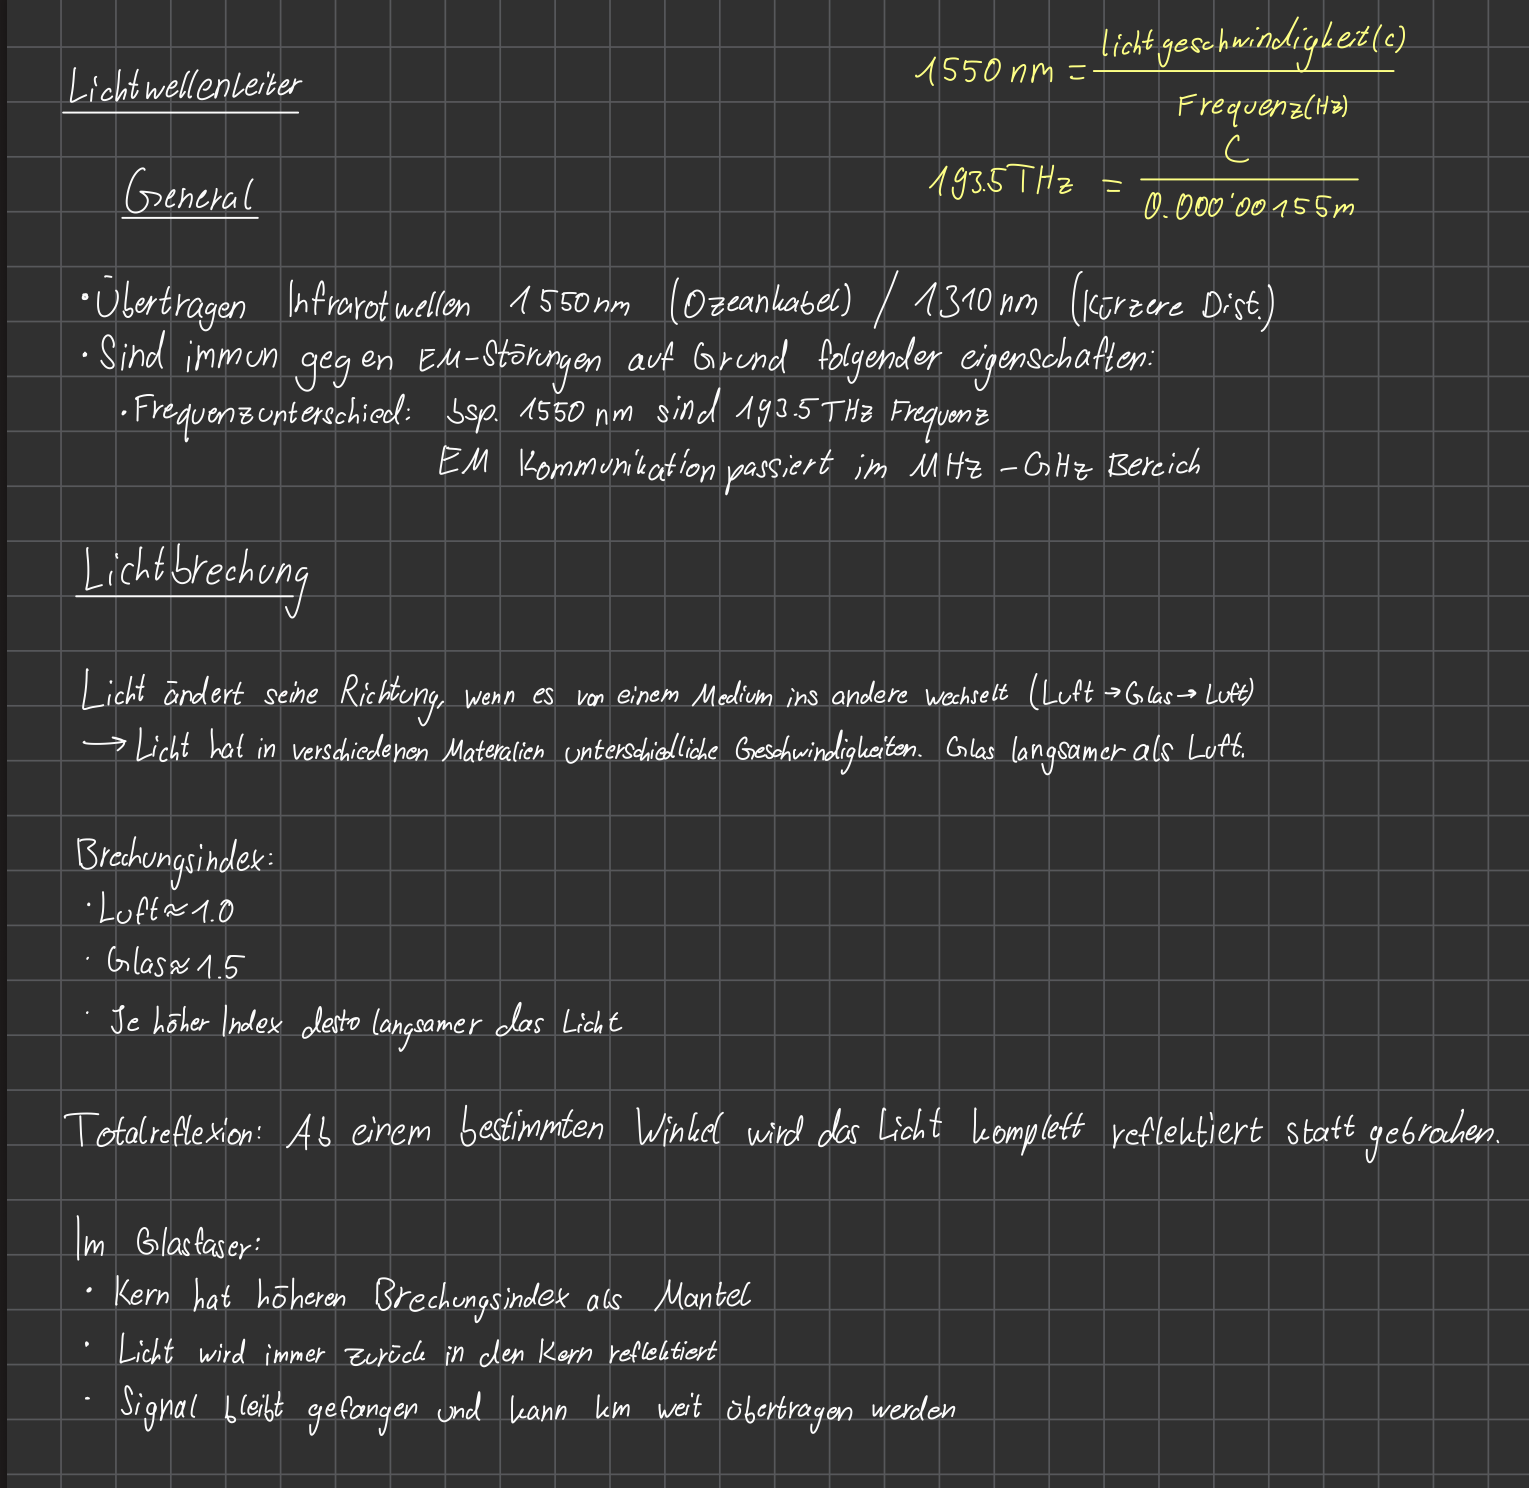 Lichtwellenleiter
1550 nm = lichtgeschwindigkeit(c)
Frequenz(Hz)
General
193.5 THz = C
0.000'00155m
· Übertragen Infrarotwellen 1550nm (Ozeankabel) / 1310nm (Kürzere Dist.)
· Sind immun gegen EM-Störungen auf Grund folgender eigenschaften:
· Frequenzunterschied: bsp. 1550 nm sind 193.5 THz Frequenz
EM Kommunikation passiert im MHz - GHz Bereich
Lichtbrechung
Licht ändert seine Richtung, wenn es von einem Medium ins andere wechselt (Luft → Glas → Luft)
→ Licht hat in verschiedenen Materalien unterschiedliche Geschwindigkeiten. Glas langsamer als Luft.
Brechungsindex:
· Luft ≈ 1.0
· Glas ≈ 1.5
· Je höher Index desto langsamer das Licht
Totalreflexion: Ab einem bestimmten Winkel wird das Licht komplett reflektiert statt gebrochen.
Im Glasfaser:
· Kern hat höheren Brechungsindex als Mantel
· Licht wird immer zurück in den Kern reflektiert
· Signal bleibt gefangen und kann km weit übertragen werden